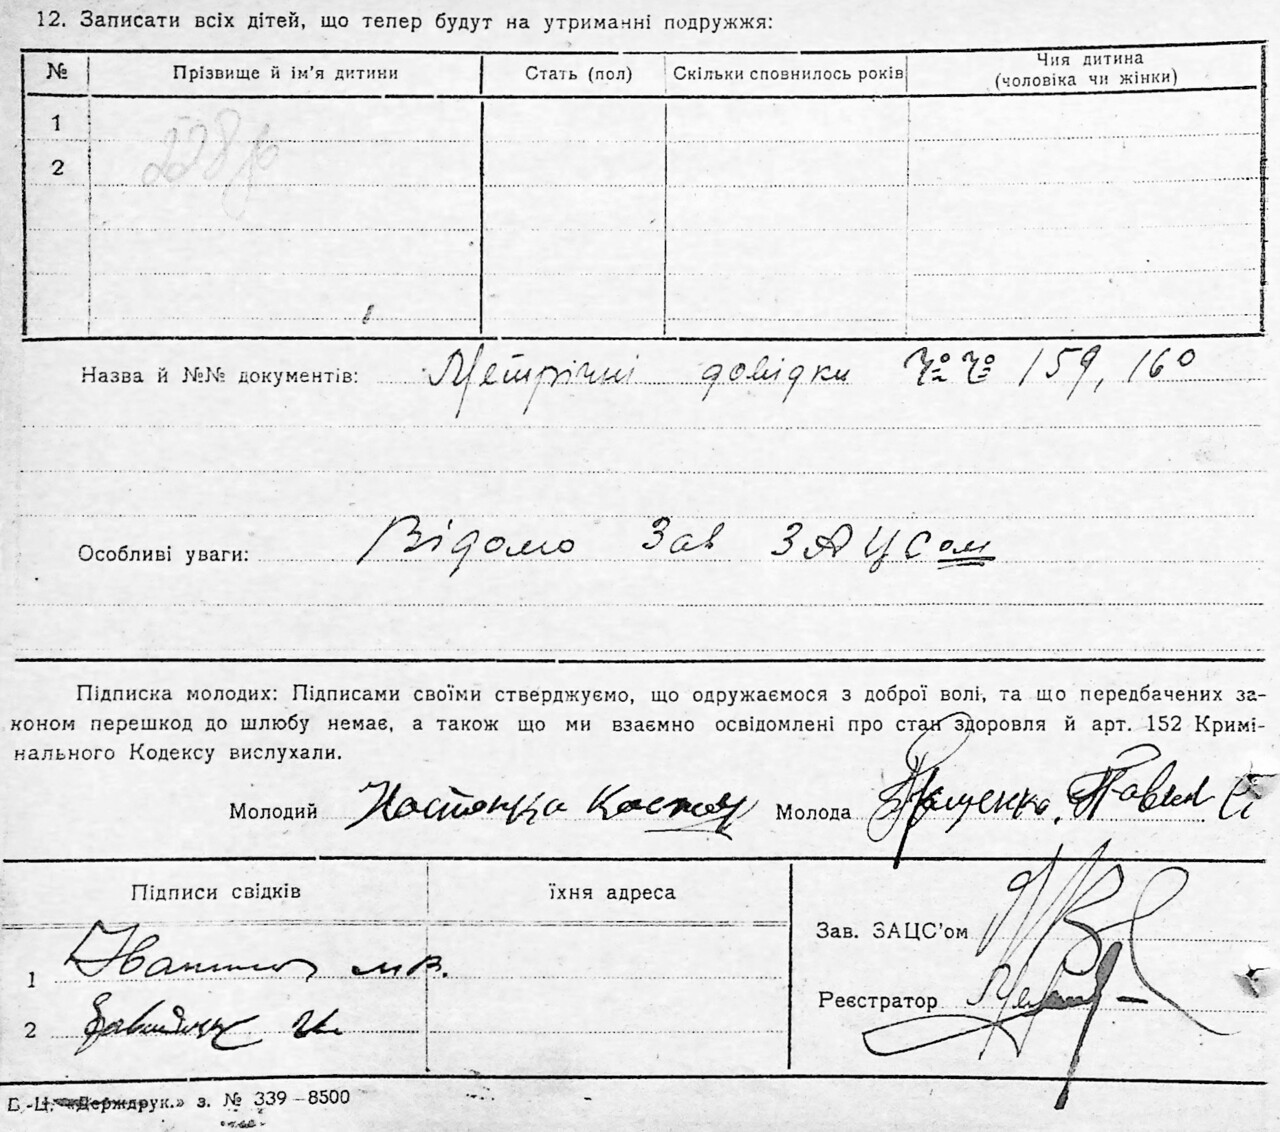 12. Записати всіх дітей, що тепер будут на утриманні подружжя:
№ Прізвище й ім'я дитини Стать (пол) Скільки сповнилось років Чия дитина
(чоловіка чи жінки)
1
2
Назва й №№ документів: Метрічні довідки №№ 159, 160
Особливі уваги: Відомо Зав ЗАЦСом
Підписка молодих: Підписами своїми стверджуємо, що одружаємося з доброї волі, та що передбачених за-
коном перешкод до шлюбу немає, а також що ми взаємно освідомлені про стан здоровля й арт. 152 Кримі-
нального Кодексу вислухали.
Молодий Молода
Підписи свідків їхня адреса
Зав. ЗАЦС'ом
1
Реєстратор
2
«Держдрук.» з. № 339–8500